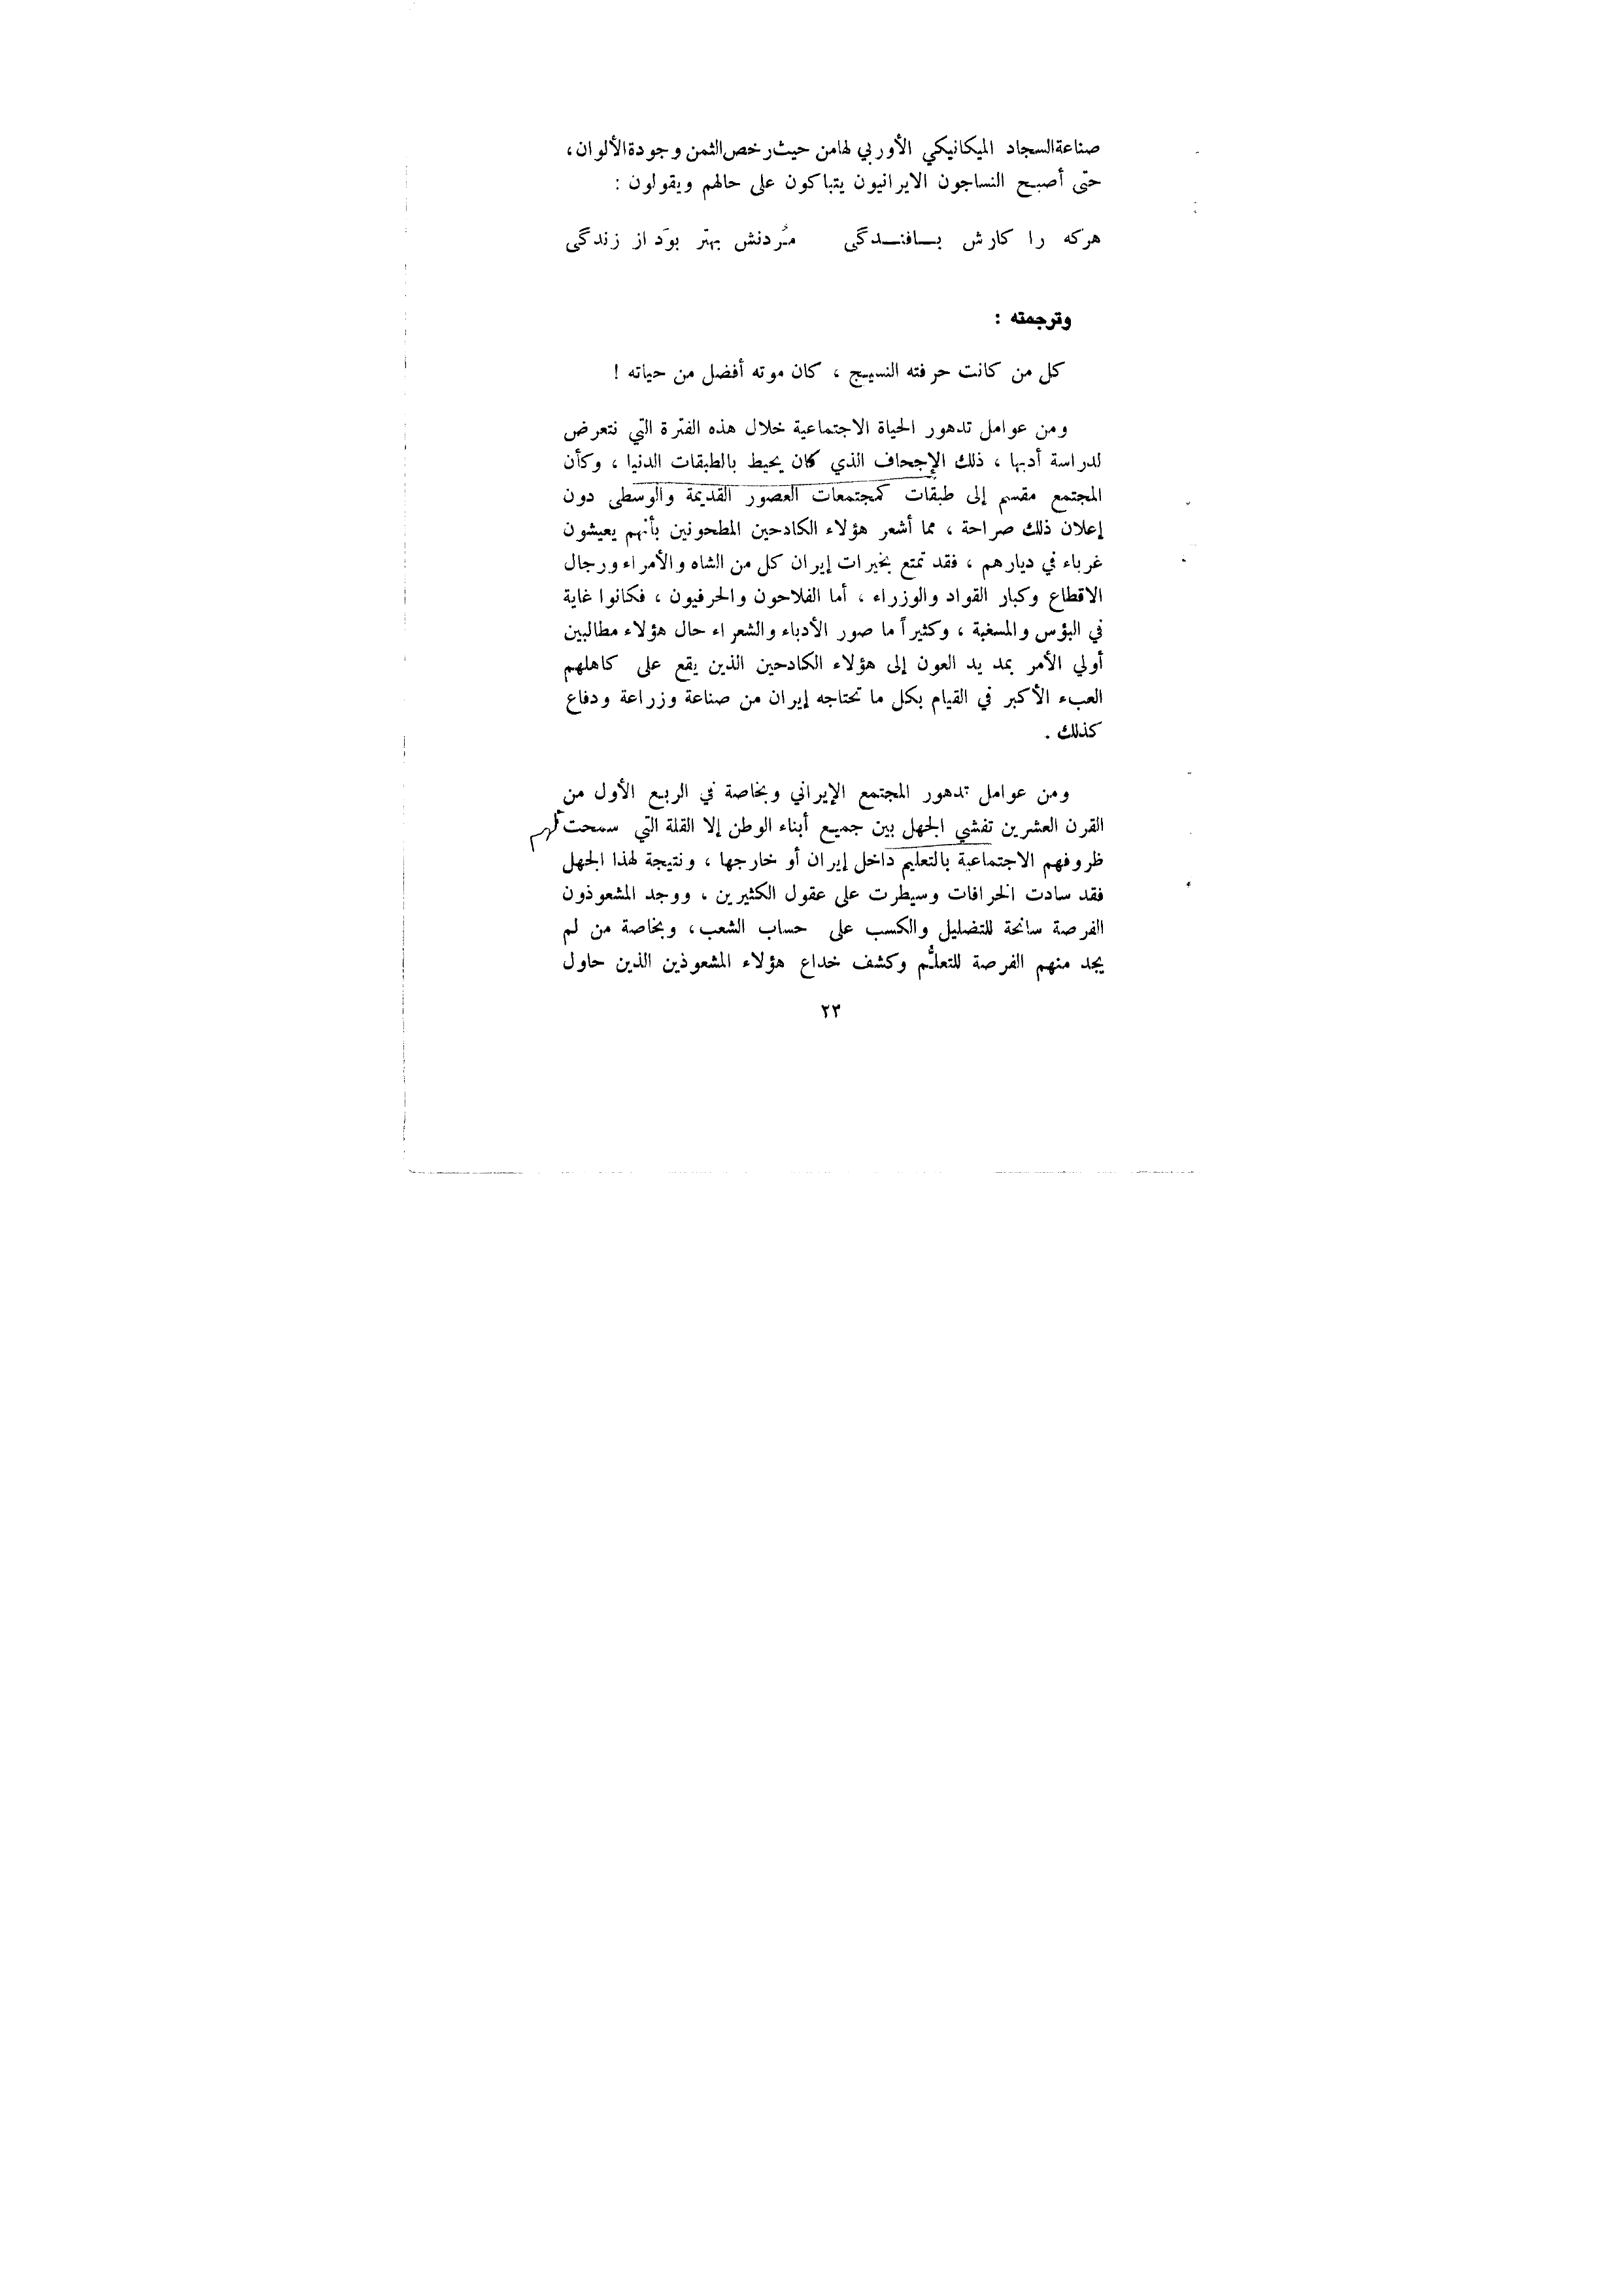 صناعة السجاد الميكانيكي الأوربي لها من حيث رخص الثمن وجودة الألوان ،
حتّى أصبح النساجون الايرانيون يتباكون على حالهم ويقولون :
هركه را كارش بـافنـدگى مُردنش بهتر بوَد از زندگى
وترجمته :
كل من كانت حرفته النسيج ، كان موته أفضل من حياته !
ومن عوامل تدهور الحياة الاجتماعية خلال هذه الفترة التي نتعرض
لدراسة أدبها ، ذلك الإجحاف الذي كان يحيط بالطبقات الدنيا ، وكأن
المجتمع مقسم إلى طبقات كمجتمعات العصور القديمة والوسطى دون
إعلان ذلك صراحة ، مما أشعر هؤلاء الكادحين المطحونين بأنهم يعيشون
غرباء في ديارهم ، فقد تمتع بخيرات إيران كل من الشاه والأمراء ورجال
الاقطاع وكبار القواد والوزراء ، أما الفلاحون والحرفيون ، فكانوا غاية
في البؤس والمسغبة ، وكثيراً ما صور الأدباء والشعراء حال هؤلاء مطالبين
أولي الأمر بمد يد العون إلى هؤلاء الكادحين الذين يقع على كاهلهم
العبء الأكبر في القيام بكل ما تحتاجه إيران من صناعة وزراعة ودفاع
كذلك .
ومن عوامل تدهور المجتمع الإيراني وبخاصة في الربع الأول من
القرن العشرين تفشي الجهل بين جميع أبناء الوطن إلا القلة التي سمحت لهم
ظروفهم الاجتماعية بالتعليم داخل إيران أو خارجها ، ونتيجة لهذا الجهل
فقد سادت الخرافات وسيطرت على عقول الكثيرين ، ووجد المشعوذون
الفرصة سانحة للتضليل والكسب على حساب الشعب ، وبخاصة من لم
يجد منهم الفرصة للتعلُّم وكشف خداع هؤلاء المشعوذين الذين حاول
٢٣